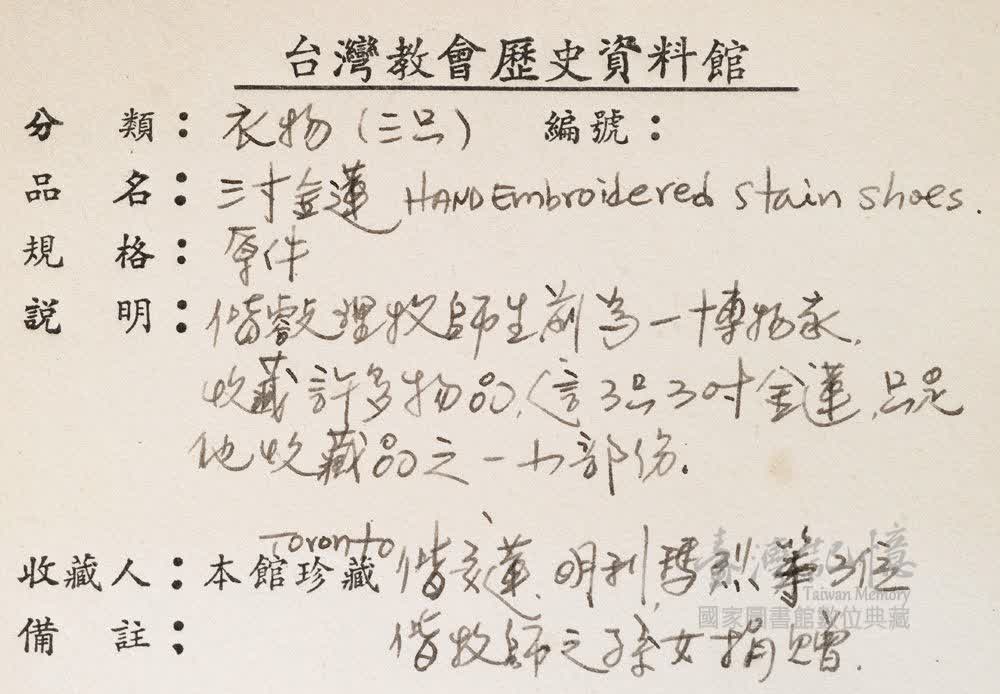 台灣教會歷史資料館
分類：衣物（三只） 編號：
品名：三寸金蓮 HAND Embroidered stain shoes.
規格：原件
説明：偕叡理牧師生前為一博物家，
收藏許多物品，這3只3吋金蓮，只是
他收藏品之一小部份.
Toronto
收藏人：本館珍藏 偕文蓮、明利、瑪烈 等3位
備註： 偕牧師之孫女捐贈.
臺灣記憶
Taiwan Memory
國家圖書館數位典藏